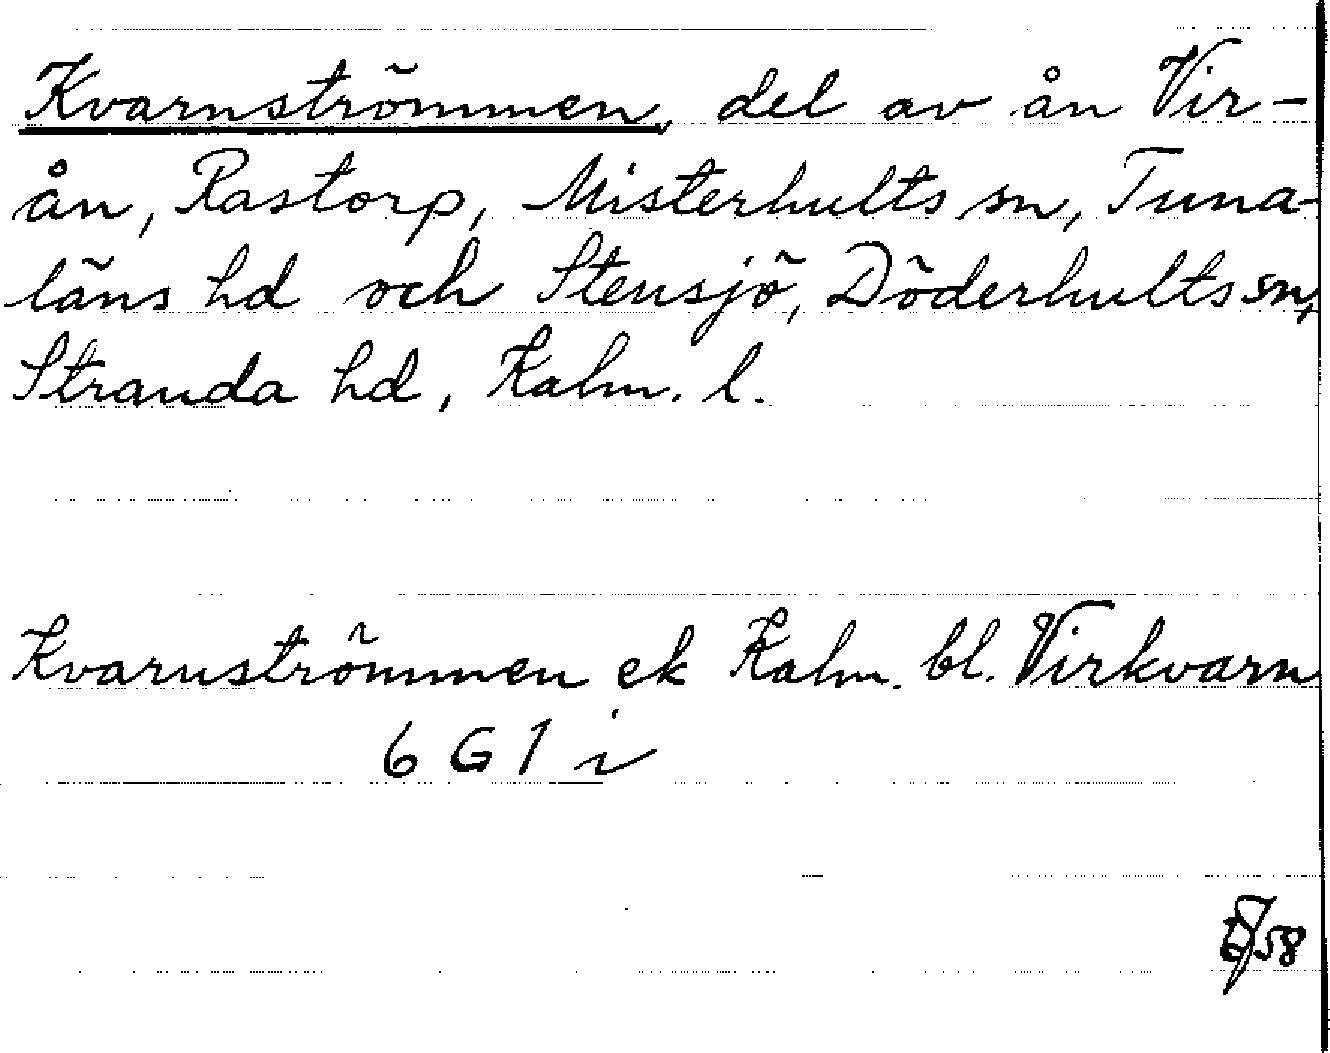 Kvarnströmmen, del av ån Vir-
ån, Rastorp, Misterhults sn, Tuna-
läns hd och Stensjö, Döderhults sn,
Stranda hd, Kalm. l.
Kvarnströmmen ek Kalm. bl. Virkvarn
6 G 1 i
58